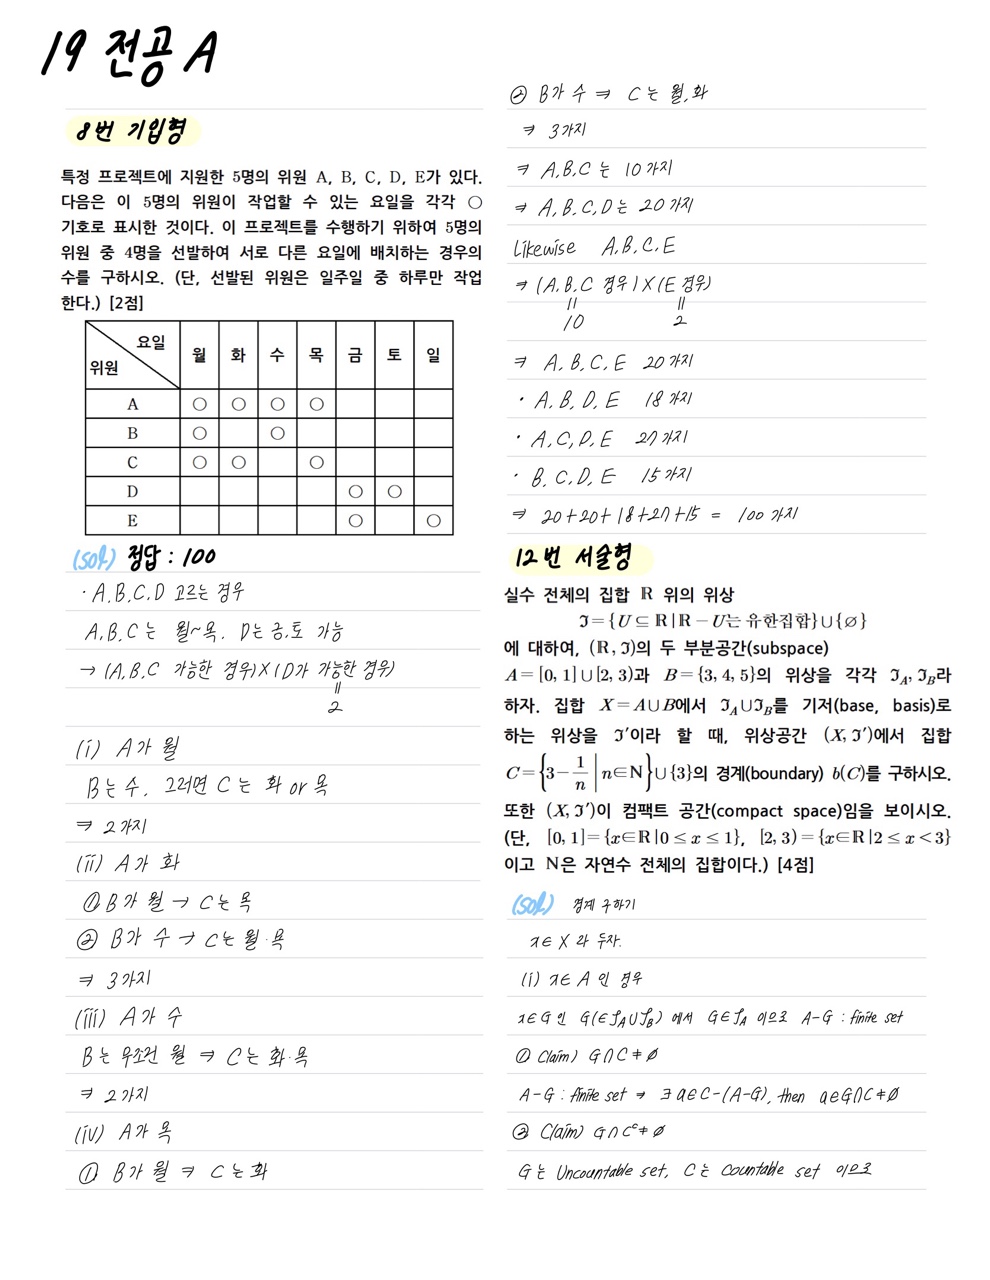 19 전공 A
8번 기입형
특정 프로젝트에 지원한 5명의 위원 A, B, C, D, E가 있다.
다음은 이 5명의 위원이 작업할 수 있는 요일을 각각 ○
기호로 표시한 것이다. 이 프로젝트를 수행하기 위하여 5명의
위원 중 4명을 선발하여 서로 다른 요일에 배치하는 경우의
수를 구하시오. (단, 선발된 위원은 일주일 중 하루만 작업
한다.) [2점]
요일
위원 월 화 수 목 금 토 일
A ○ ○ ○ ○
B ○ ○
C ○ ○ ○
D ○ ○
E ○ ○
(sol) 정답 : 100
· A, B, C, D 고르는 경우
A, B, C는 월~목, D는 금,토 가능
→ (A, B, C 가능한 경우)×(D가 가능한 경우)
=
2
(i) A가 월
B는 수, 그러면 C는 화 or 목
⇒ 2가지
(ii) A가 화
① B가 월 → C는 목
② B가 수 → C는 월·목
⇒ 3가지
(iii) A가 수
B는 무조건 월 ⇒ C는 화·목
⇒ 2가지
(iv) A가 목
① B가 월 ⇒ C는 화
② B가 수 ⇒ C는 월,화
⇒ 3가지
⇒ A, B, C는 10가지
⇒ A, B, C, D는 20가지
Likewise A, B, C, E
⇒ (A, B, C 경우)×(E 경우)
= =
10 2
⇒ A, B, C, E 20가지
· A, B, D, E 18가지
· A, C, D, E 27가지
· B, C, D, E 15가지
⇒ 20+20+18+27+15 = 100가지
12번 서술형
실수 전체의 집합 ℝ 위의 위상
ℑ={U⊆ℝ|ℝ−U는 유한집합}∪{∅}
에 대하여, (ℝ, ℑ)의 두 부분공간(subspace)
A=[0, 1]∪[2, 3)과 B={3, 4, 5}의 위상을 각각 ℑ_A, ℑ_B라
하자. 집합 X=A∪B에서 ℑ_A∪ℑ_B를 기저(base, basis)로
하는 위상을 ℑ′이라 할 때, 위상공간 (X, ℑ′)에서 집합
C={3−1/n | n∈ℕ}∪{3}의 경계(boundary) b(C)를 구하시오.
또한 (X, ℑ′)이 컴팩트 공간(compact space)임을 보이시오.
(단, [0, 1]={x∈ℝ|0≤x≤1}, [2, 3)={x∈ℝ|2≤x<3}
이고 ℕ은 자연수 전체의 집합이다.) [4점]
(sol) 경계 구하기
x∈X라 두자.
(i) x∈A인 경우
x∈G인 G(∈ℑ_A∪ℑ_B)에서 G∈ℑ_A 이므로 A−G : finite set
① Claim) G∩C≠∅
A−G : finite set ⇒ ∃a∈C−(A−G), then a∈G∩C≠∅
② Claim) G∩Cᶜ≠∅
G는 Uncountable set, C는 Countable set 이므로